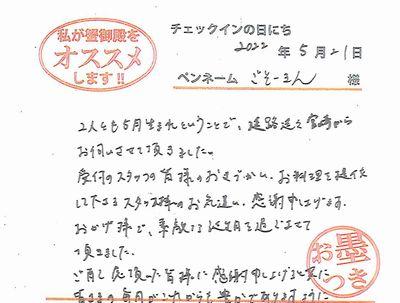 私が蟹御殿を
オススメ
します!!
チェックインの日にち
2022年5月21日
ペンネーム ごろーさん 様
2人とも5月生まれということで、遠路遥々宮崎から
お伺いさせて頂きました。
受付のスタッフの皆様のおもてなし、お料理を提供
して下さるスタッフ様のお気遣い、感謝申し上げます。
おかげ様で、素敵な誕生月を過ごさせて
頂きました。
ご対応頂いた皆様に感謝申し上げると共に
皆さまの毎日がこれからも豊かでありますように
お墨
つき